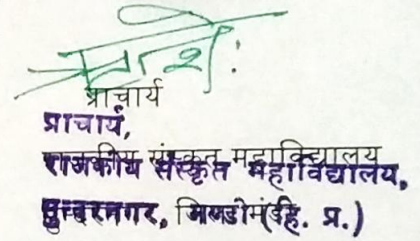 प्राचार्य
प्राचार्य,
राजकीय संस्कृत महाविद्यालय
राजकीय संस्कृत महाविद्यालय,
सुन्दरनगर, (हि. प्र.)